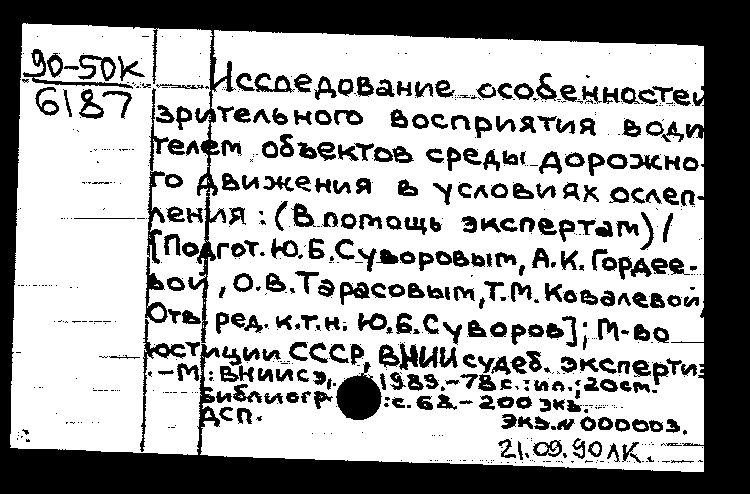 90-50К
6187
Исследование особенностей
зрительного восприятия води
телем объектов среды дорожно-
го движения в условиях ослеп-
ления : (В помощь экспертам) /
[Подгот. Ю.Б.Суворовым, А.К.Гордее-
вой, О.В.Тарасовым, Т.М.Ковалевой,
Отв. ред. к.т.н. Ю.Б.Суворов]; М-во
юстиции СССР, ВНИИ судеб. экспертиз
.-М.: ВНИИСЭ, 1989.-78с.:ил.; 20см.
Библиогр :с.68.-200 экз.
ДСП.
Экз.N 000003.
21.09.90 ЛК.